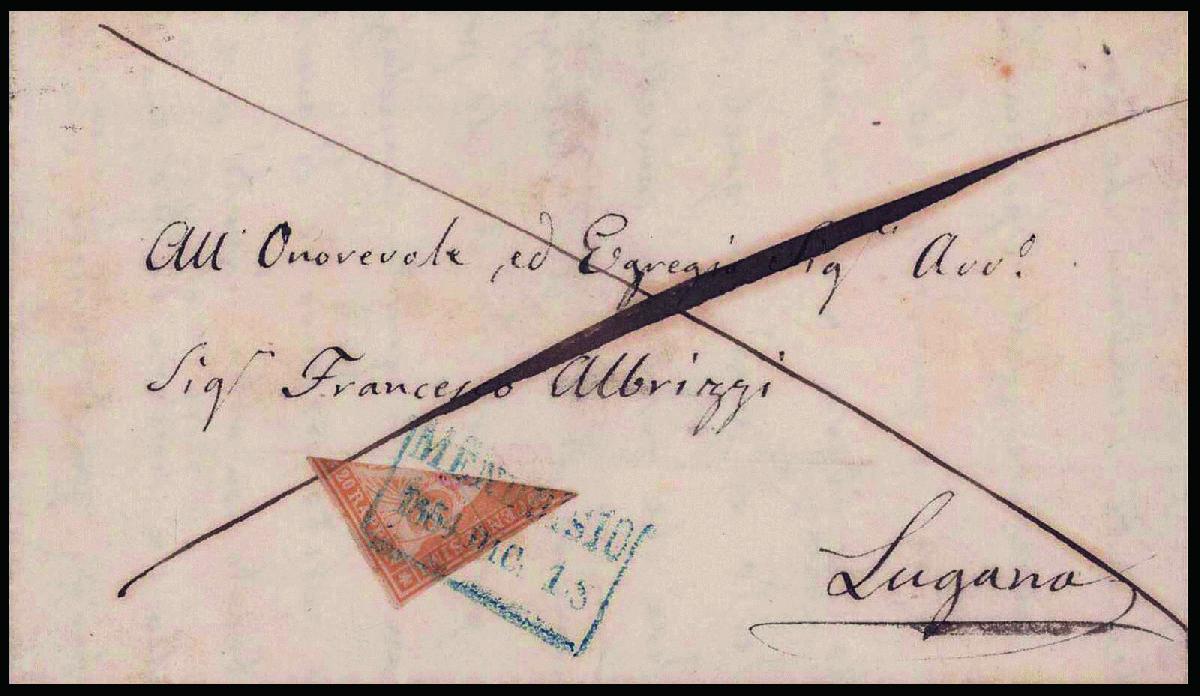 All' Onorevole, ed Egregio Sigr Avvo.
Sigr Francesco Albrizzi
Lugano
MENDRISIO
1854 DIC. 13
20 R